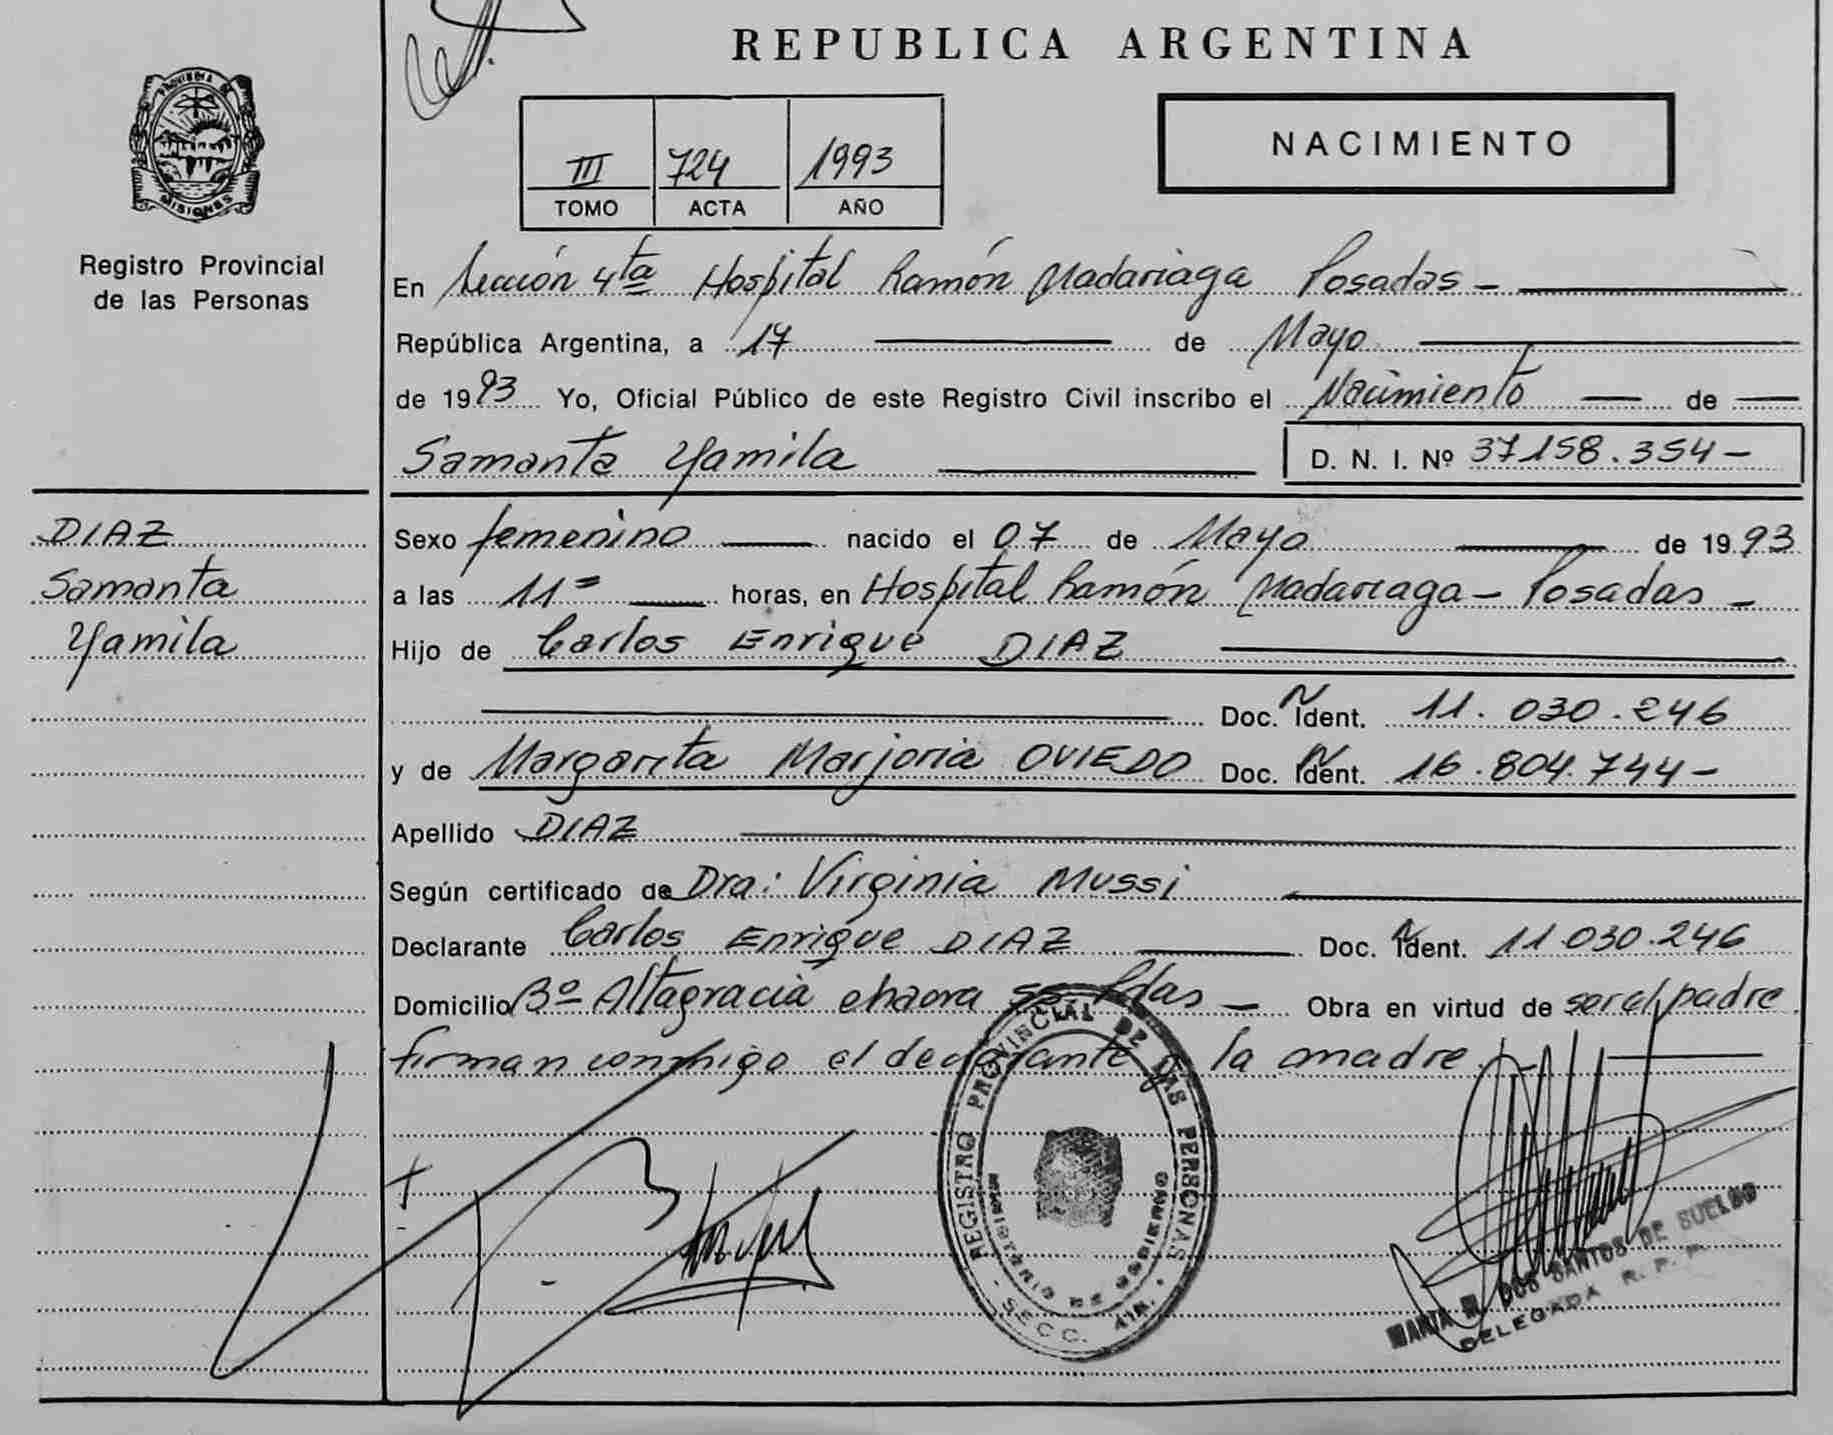 REPUBLICA ARGENTINA
PROVINCIA DE
MISIONES
Registro Provincial
de las Personas
III 724 1993
TOMO ACTA AÑO
NACIMIENTO
En Sección 4ta Hospital Ramón Madariaga Posadas -
República Argentina, a 17 de Mayo
de 1993 Yo, Oficial Público de este Registro Civil inscribo el Nacimiento de
Samanta Yamila D. N. I. Nº 37158.354-
DIAZ
Samanta
Yamila
Sexo femenino nacido el 07 de Mayo de 1993
a las 11= horas, en Hospital Ramón Madariaga - Posadas -
Hijo de Carlos Enrique DIAZ
Doc. Ident. 11.030.246
y de Margarita Marjoria OVIEDO Doc. Ident. 16.804.744-
Apellido DIAZ
Según certificado de Dra: Virginia Mussi
Declarante Carlos Enrique DIAZ Doc. Ident. 11.030.246
Domicilio Bº Altagracia chacra Pdas - Obra en virtud de ser el padre
firman conmigo el declarante y la madre.
REGISTRO PROVINCIAL DE LAS PERSONAS
MINISTERIO DE GOBIERNO
SECC. 4ta.
MARIA M. DOS SANTOS DE SUELDO
DELEGADA R. P. P.